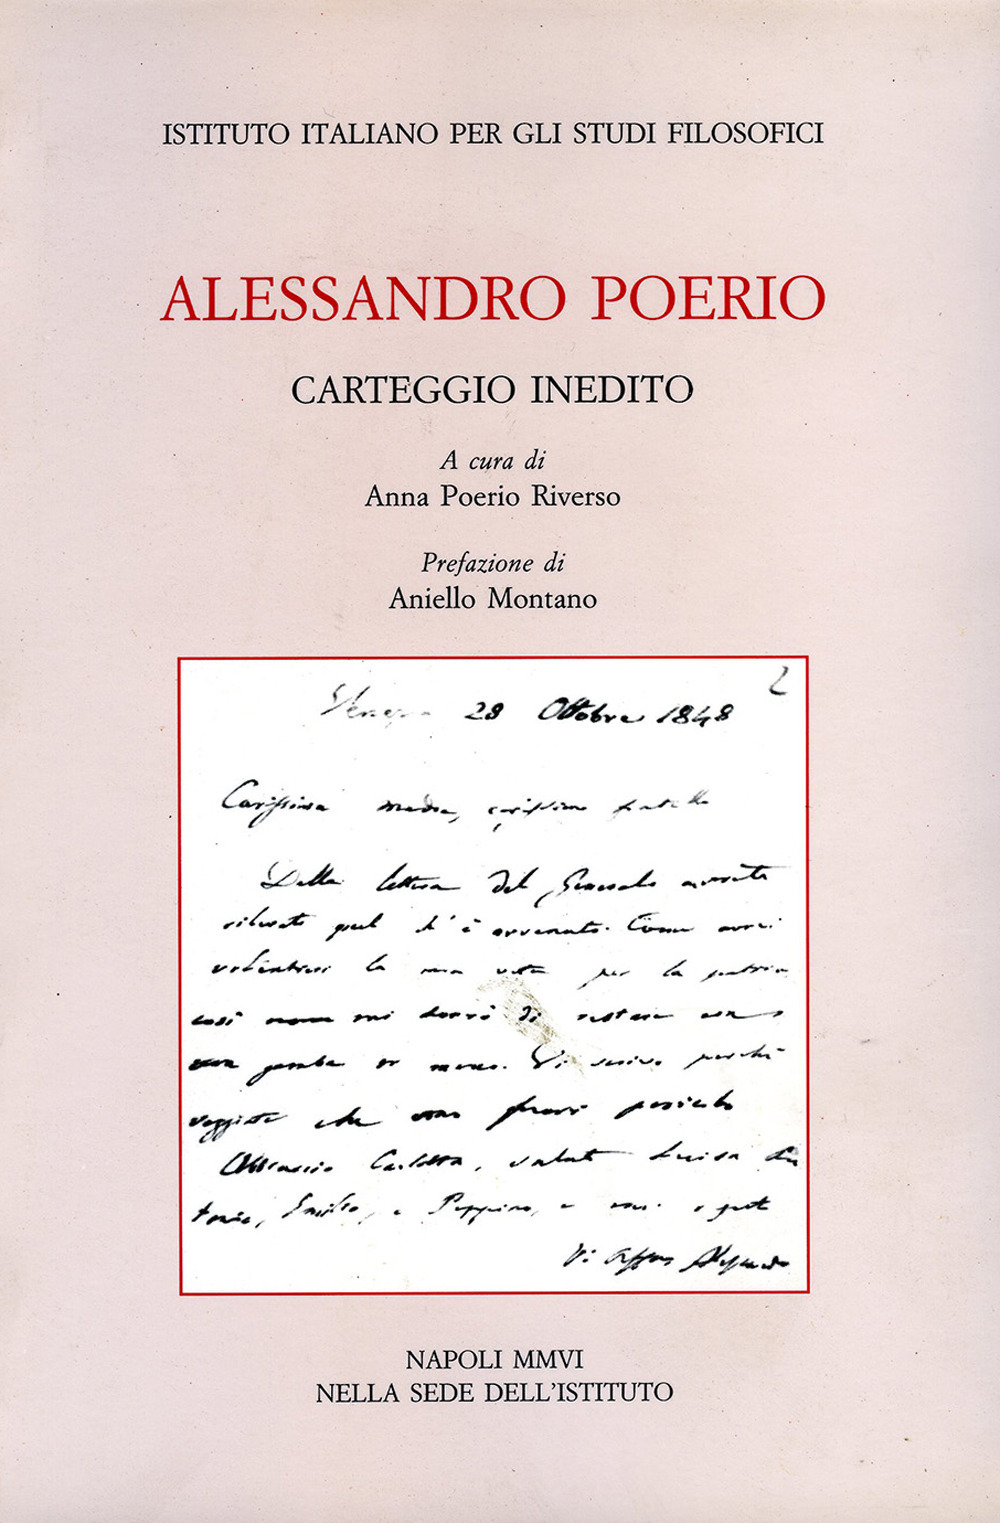 ISTITUTO ITALIANO PER GLI STUDI FILOSOFICI
ALESSANDRO POERIO
CARTEGGIO INEDITO
A cura di
Anna Poerio Riverso
Prefazione di
Aniello Montano
2
Venezia 28 Ottobre 1848
Carissima madre, carissimo fratello
Dalla lettera del Generale avrete
rilevato quel ch'è avvenuto. Come avrei
volentieri la mia vita per la patria
così non mi dorrà di restare con
una gamba di meno. Vi scrivo perché
veggiate che sono fuori pericolo
Abbraccio Carlotta, saluti Luisa
Emilio, e Peppino, e
Vi Alessandro
NAPOLI MMVI
NELLA SEDE DELL'ISTITUTO